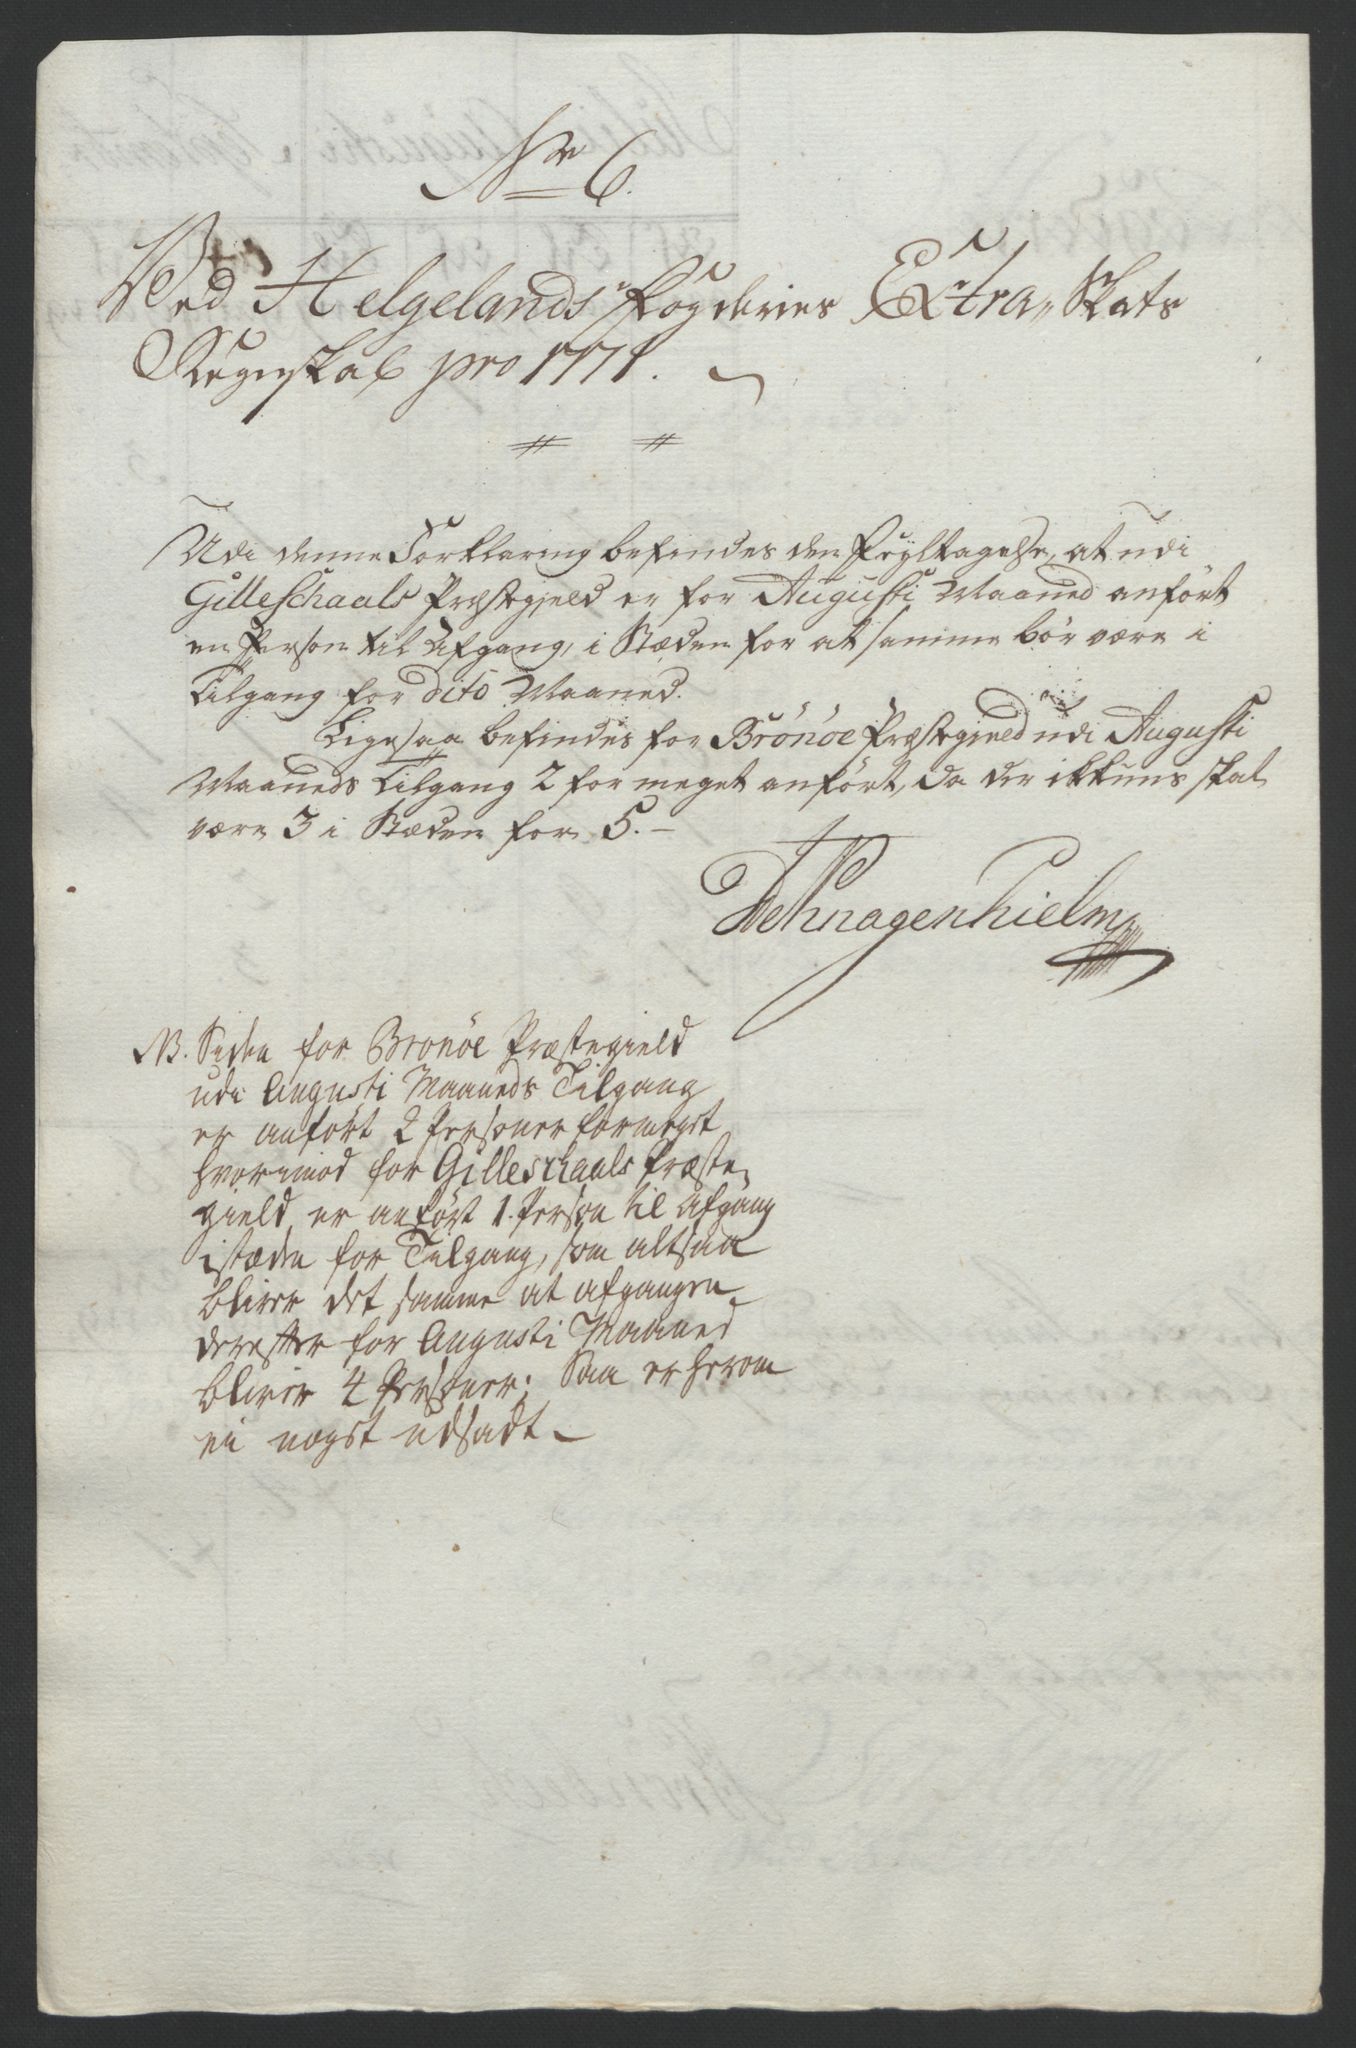 No 6.
Ved Helgelands Fogderies Extra Skats
Regenskab pro 1771.
Udi denne Forklaring befindes den Feyltagelse, at udi
Gilleschaals Præstegjeld er for Augusti Maaned anført
en Person til Afgang, i Stæden for at samme bør være i
Tilgang for dito Maaned.
Ligesaa befindes for Brønøe Præstegjeld udi Augusti
Maaneds Tilgang 2 for meget anført, da der ikkuns skal
være 3 i Stæden for 5.
de Knagenhielm
NB. Siden for Brønøe Præstegield
udi Augusti Maaneds Tilgang
er anført 2 Personer formegt
hvorimod for Gilleschaals Præste
gield er anført 1. Person til Afgang
istæden for Tilgang, som altsaa
bliver det samme at afgangen
derefter for Augusti Maaned
bliver 4 Personer; Saa er herom
ei noget udsadt